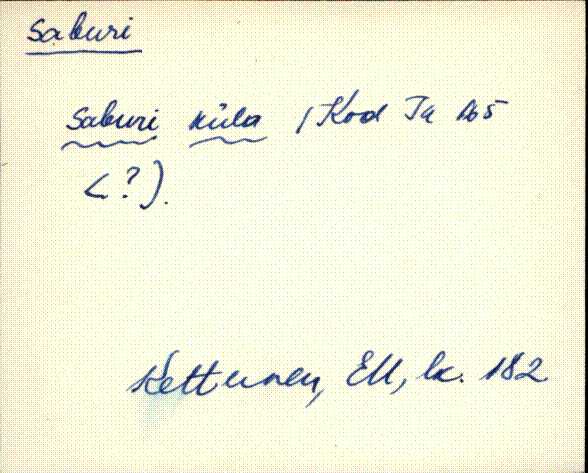 Saburi
Saburi küla (Kod Ta 165
<?).
Kettunen, EM, lk. 182